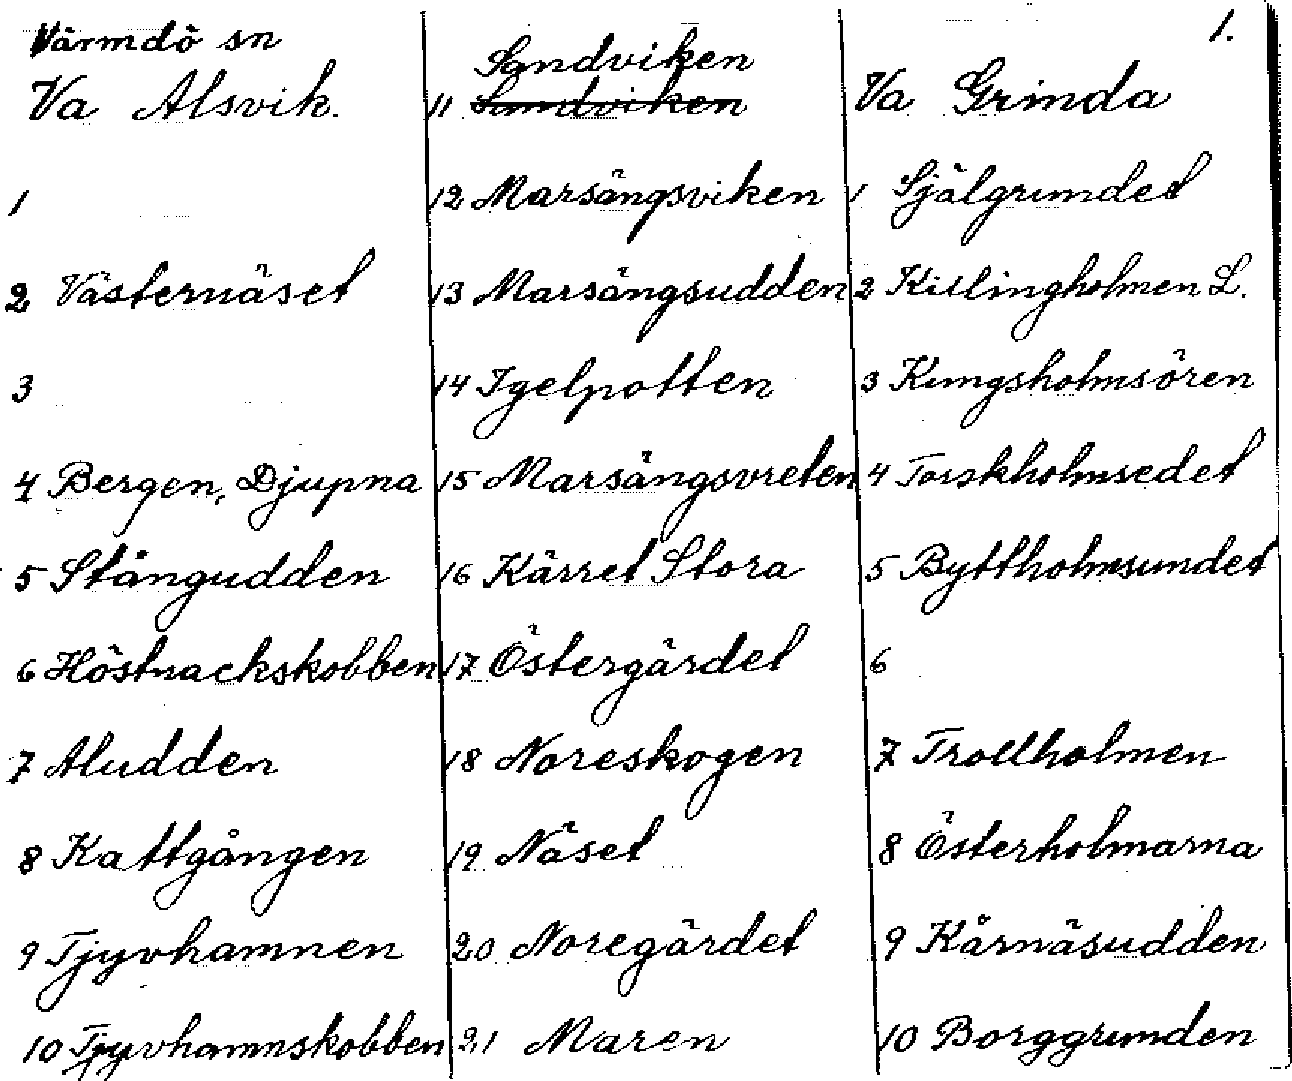 1.
Värmdö sn
Va Alsvik.
1
2 Västernäset
3
4 Bergen, Djupna
5 Stångudden
6 Höstnackskobben
7 Aludden
8 Kattgången
9 Tjyvhamnen
10 Tjyvhamnskobben
Sandviken
11 Sandviken
12 Marsängsviken
13 Marsängsudden
14 Igelpotten
15 Marsängsvreten
16 Kärret Stora
17 Östergärdet
18 Noreskogen
19 Näset
20 Noregärdet
21 Maren
Va Grinda
1 Själgrundet
2 Kislingholmen L.
3 Kungsholmsören
4 Torskholmsedet
5 Byttholmsundet
6
7 Trollholmen
8 Österholmarna
9 Kårnäsudden
10 Borggrunden